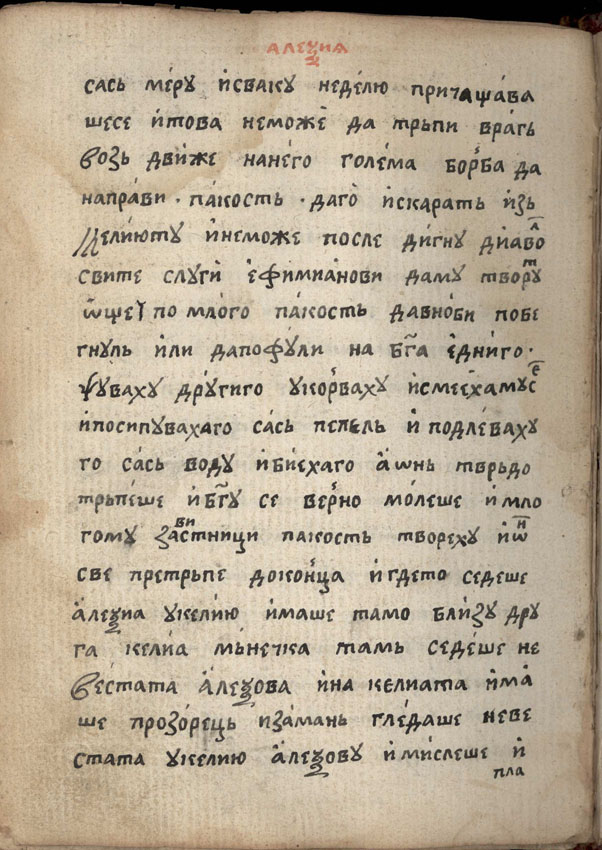 АЛЕѮИѦ
сась ме́рꙋ и҆сваку неде́лю причаща́ва
шесе и҆това неможе да трьпи врагь
возь дви́же нанего голе́ма борба да
напра́ви · па́кость · даго̀ и҆скарать и҆зь
келию́тꙋ и҆неможе после ди́гнꙋ дїа́воⷧ
свите слꙋгѝ е҆фимиа́нови дамꙋ твоⷬрꙋⷮ
ѿще по мло́го па́кость давно́би побе
гнꙋль и҆ли дапофꙋ́ли на бг҃а е҆дниго ·
псꙋваху дрꙋ́гиго ꙋкорваху и҆смее́хамꙋсеⷭ
и҆посипꙋвахаго са́сь пепель и҆ подле́вахꙋ
го са́сь водꙋ и҆бїе́хаго а҆ ѡнь твръдо
трьпеше и҆ бг҃ꙋ се верно мо́леше и҆ мло
гомꙋ завистници пакость творехꙋ и҆ ѡⷩ҇
све претрьпе доконца и҆ гдето седеше
а҆леѯиа ꙋкелию и҆маше тамо близꙋ дрꙋ
га келїа мьнечка тамь седе́ше не
вестата а҆леѯова и҆на келиата и҆ма́
ше прозо́рець иза́мань гле́даше неве
стата ꙋкелию а҆леѯовꙋ и҆ мислеше и҆
пла